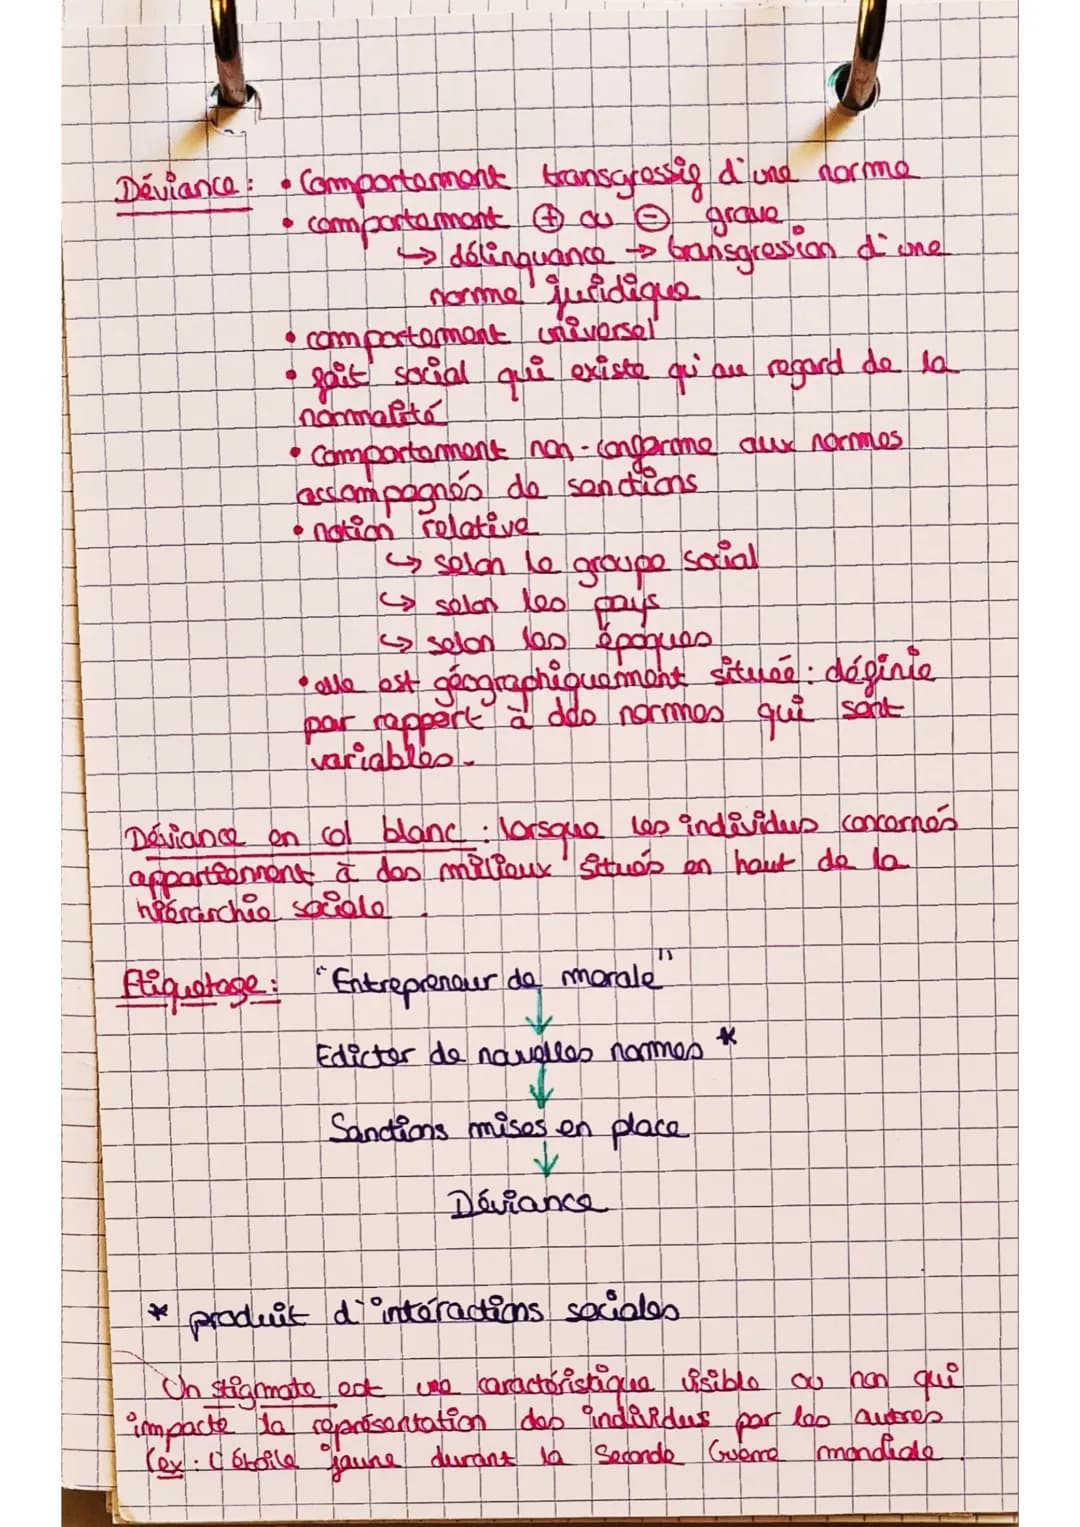 Déviance : • Comportement transgressif d'une norme
• comportement ⊕ ou ⊖ grave
↳ délinquance → transgression d'une
norme juridique
• comportement universel
• fait social qui existe qu'au regard de la
normalité
• comportement non-conforme aux normes
accompagnés de sanctions
• notion relative
↳ selon le groupe social
↳ selon les pays
↳ selon les époques
• elle est géographiquement située : définie
par rapport à des normes qui sont
variables.
Déviance en col blanc : lorsque les individus concernés
appartiennent à des milieux situés en haut de la
hiérarchie sociale.
Etiquetage : "Entrepreneur de morale"
↓
Edicter de nouvelles normes *
↓
Sanctions mises en place
↓
Déviance
* produit d'intéractions sociales
Un stigmate est une caractéristique visible ou non qui
impacte la représentation des individus par les autres
(ex : l'étoile jaune durant la Seconde Guerre mondiale.